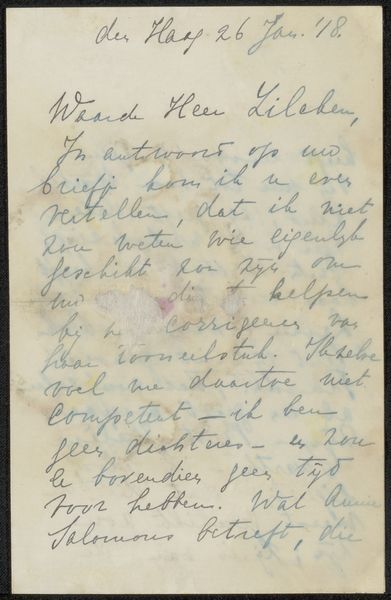 den Haag 26 Jan. '18.
Waarde Heer Zilcken,
In antwoord op uw
briefje kom ik u even
vertellen, dat ik niet
zou weten wie eigenlijk
geschikt zou zijn om
uw te helpen
bij 't corrigeeren van
haar tooneelstuk. Ikzelve
voel me daartoe niet
competent – ik ben
geen dichteres – en zou
er bovendien geen tijd
voor hebben. Wat Annie
Salomons betreft, die